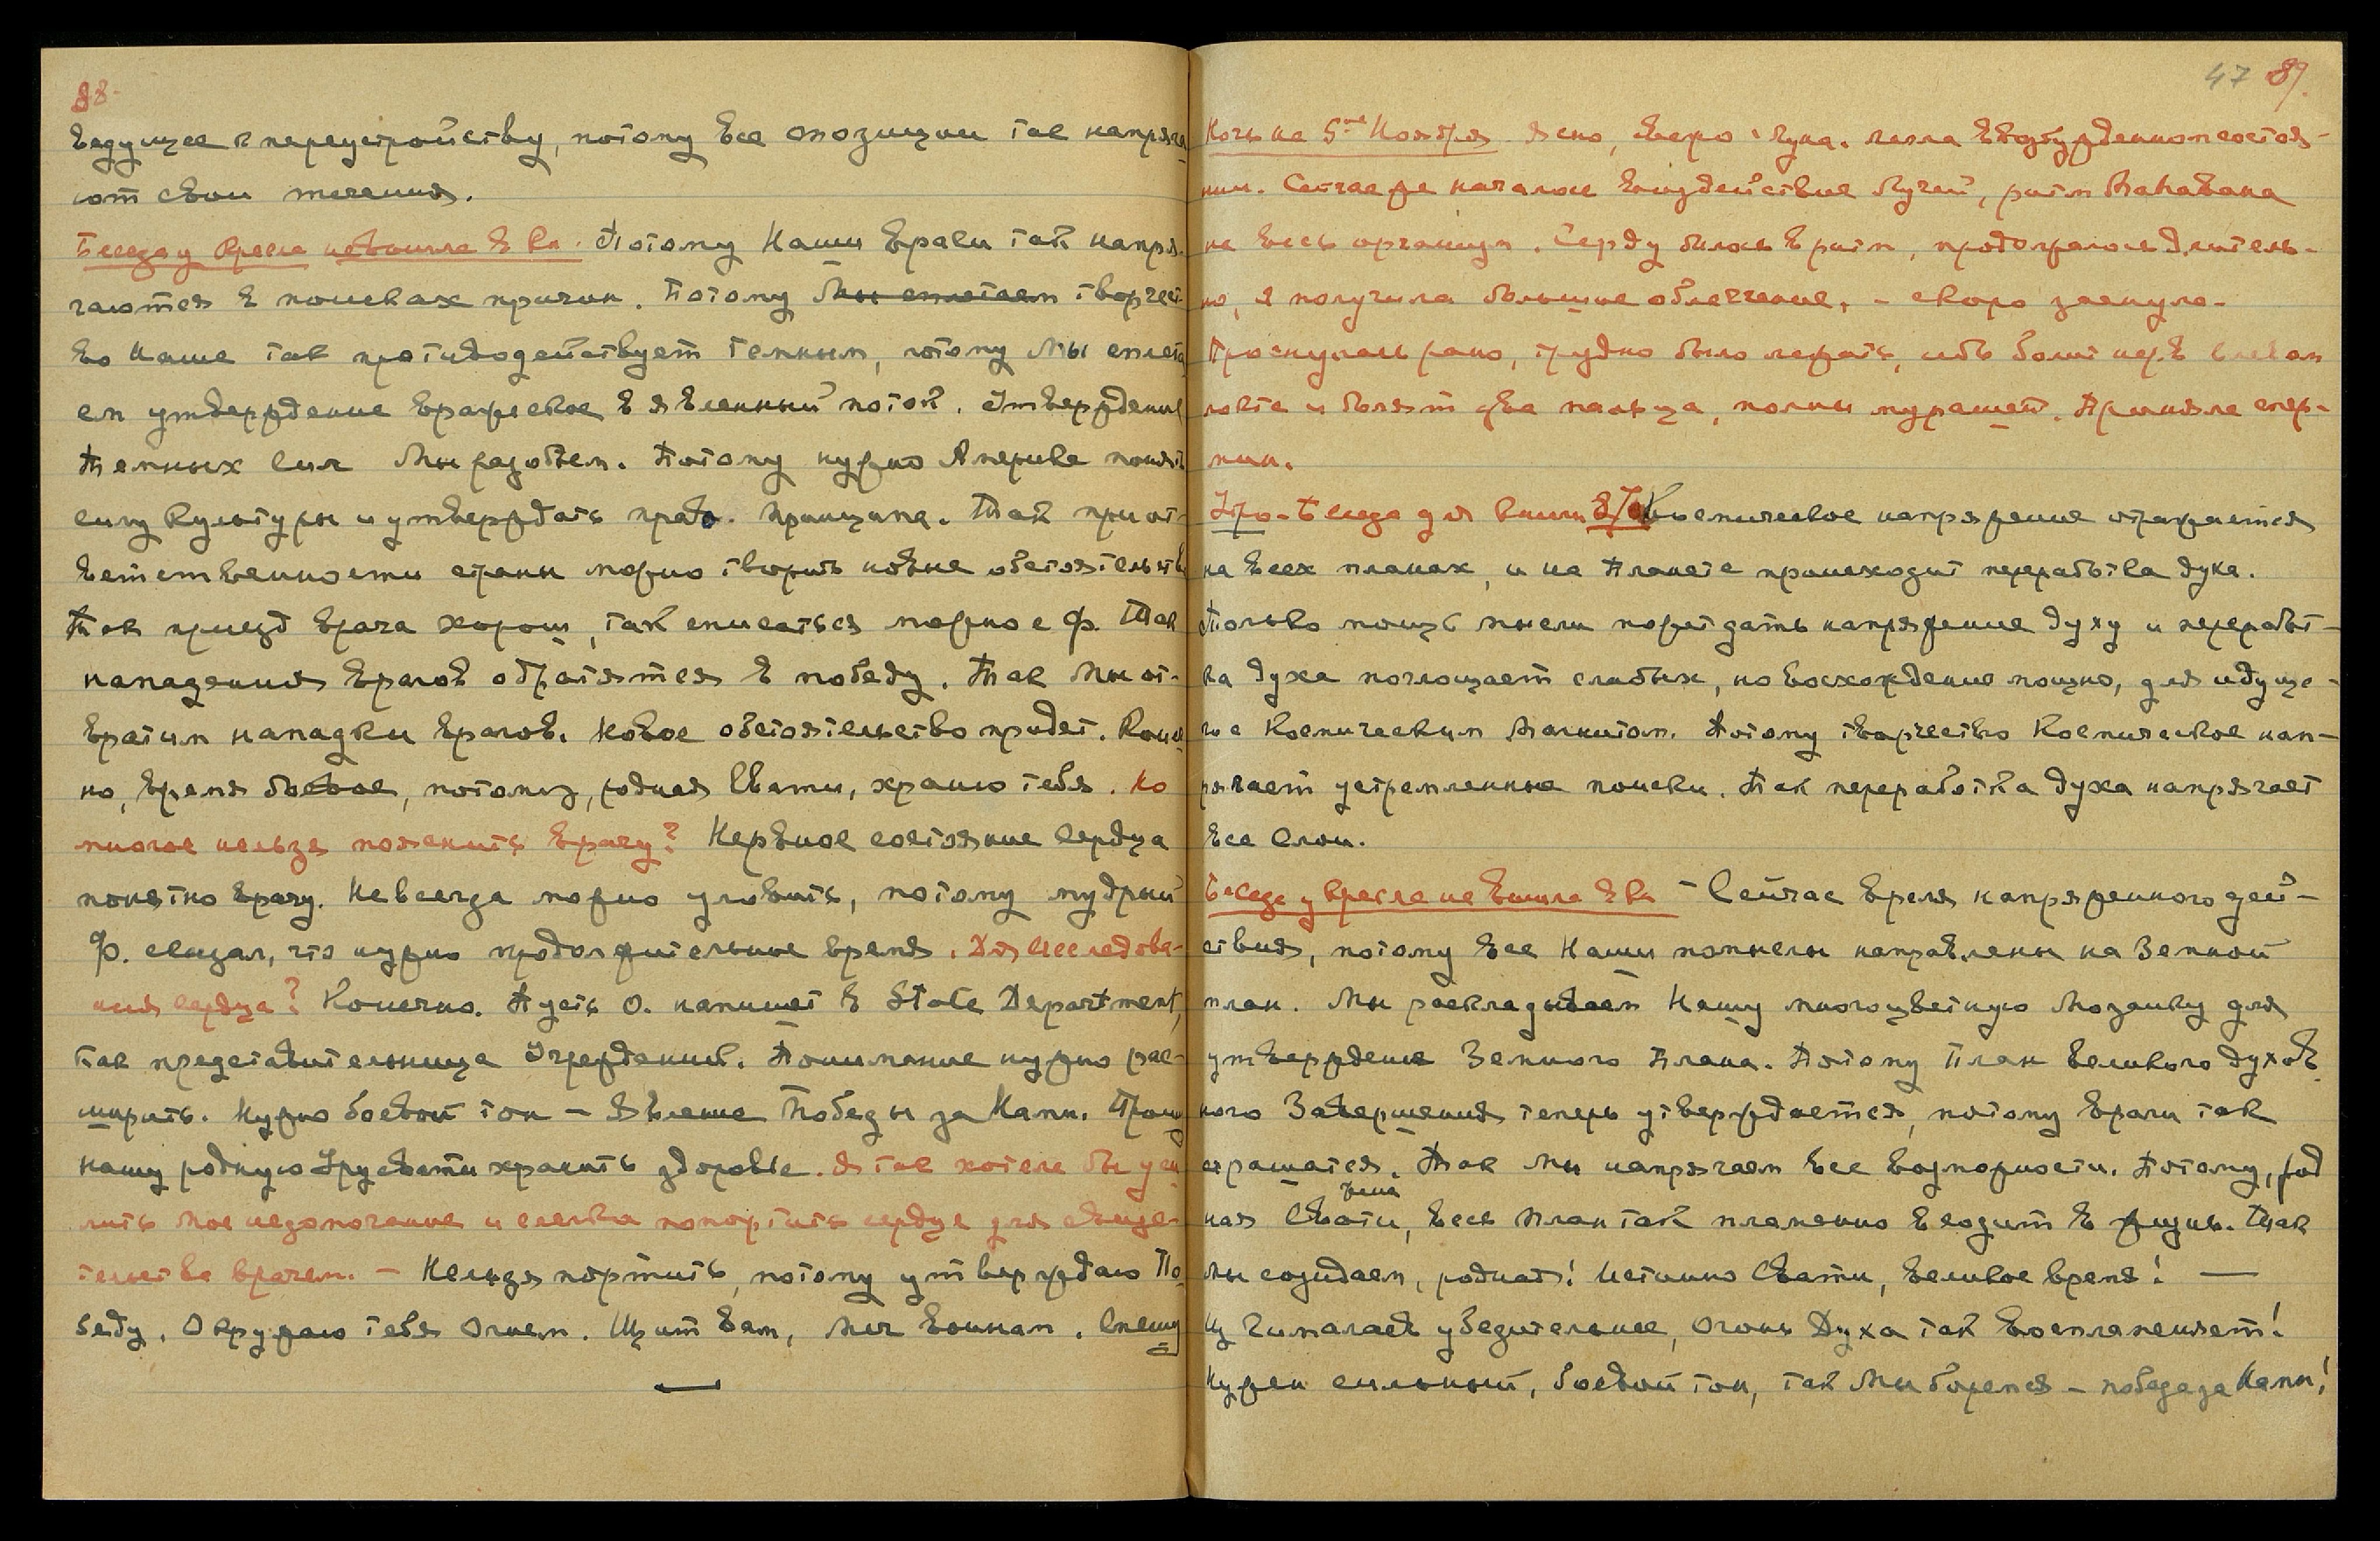 88.
ведущее к переустройству, потому все опозиции так напряга-
ют свои течения.
Беседа у кресла не вошла в кн. Потому Наши враги так напря-
гаются в поисках причин. Потому Мы сплетаем творчест-
во Наше так противодействует темным, потому Мы сплета-
ем утверждение вражеское в явленный поток. Утверждение
темных сил Мы разобьем. Потому нужно Америке понять
силу Культуры и утверждать право. принципа. Так при от-
ветственности страны можно творить новые обстоятельств
Так приезд врача хорош, так списаться можно с Ф. Так
нападения врагов обратятся в победу. Так Мы от-
вратим нападки врагов. Новое обстоятельство придет. Конеч
но, время боевое, потому, родная Свати, храню тебя. Но
многое нельзя пояснить врачу? Нервное состояние сердца
понятно врачу. Не всегда можно уловить, потому мудрый
Ф. сказал, что нужно продолжительное время. Для исследова-
ния сердца? Конечно. Пусть О. напишет в State Department,
как представительница Учреждений. Понимание нужно рас-
ширить. Нужно боевой тон – явление Победы за Нами. Прошу
нашу родную Урусвати хранить здоровье. Я так хотела бы уси
лить мое недомогание и слегка попортить сердце для свиде-
тельства врачем. – Нельзя портить, потому утверждаю По-
беду. Окружаю тебя Огнем. Щит вам, меч воинам. Спешу
47 89.
Ночь на 5ое Ноября Ясно, серо луна. легла в возбужденном состоя-
нии. Сейчас же началось воздействие Лучей, ритм Махавана
на весь организм. Сердце билось в ритм, продолжалось длитель-
но, я получила большое облегчение, – скоро заснула.
Проснулась рано, трудно было лежать, ибо болит нерв в левом
локте и болят два пальца, полны мурашей. Приняла стер-
нин.
Утро – Беседа для книги Космическое напряжение отражается
на всех планах, и на Планете происходит переработка духа.
Только мощь мысли может дать напряжение духу и переработ-
ка духа поглощает слабых, но восхождение мощно, для идуще-
го с Космическим Магнитом. Потому творчество Космическое нап-
рягает устремленные поиски. Так переработка духа напрягает
все слои.
Беседа у кресла не вошла в кн – Сейчас время напряженного дей-
ствия, потому все Наши помыслы направлены на Земной
план. Мы раскладываем Нашу многоцветную Мозаику для
утверждения Земного Плана. Потому План великого духов
ного Завершения теперь утверждается, потому враги так
страшатся. Так Мы напрягаем все возможности. Потому, род
ная Свати, весь план так пламенно входит в жизнь. Так
мы созидаем, родная! Истинно Свати, великое время! —
Из Гималаев убедительнее, Огонь Духа так воспламеняет!
Нужен сильный, боевой тон, так Мы боремся – победа за Нами!